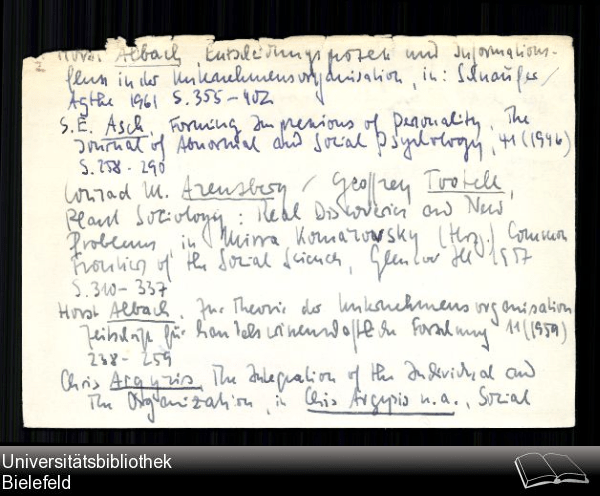 Horst Albach, Entscheidungsprozeß und Informations-
fluss in der Unternehmensorganisation, in: Schnaufer/
Agthe 1961 S. 355-402
S.E. Asch, Forming Impressions of Personality, The
Journal of Abnormal and Social Psychology, 41 (1946)
S. 258-290
Conrad M. Arensberg / Geoffrey Tootell,
Plant Sociology: Real Discoveries and New
Problems, in Mirra Komarovsky (Hrsg.) Common
Frontiers of the Social Sciences, Glencoe Ill 1957
S. 310-337
Horst Albach, Zur Theorie der Unternehmensorganisation
Zeitschrift für handelswissenschaftliche Forschung 11 (1959)
238-259
Chris Argyris, The Integration of the Individual and
the Organization, in Chris Argyris u.a., Social
Universitätsbibliothek
Bielefeld